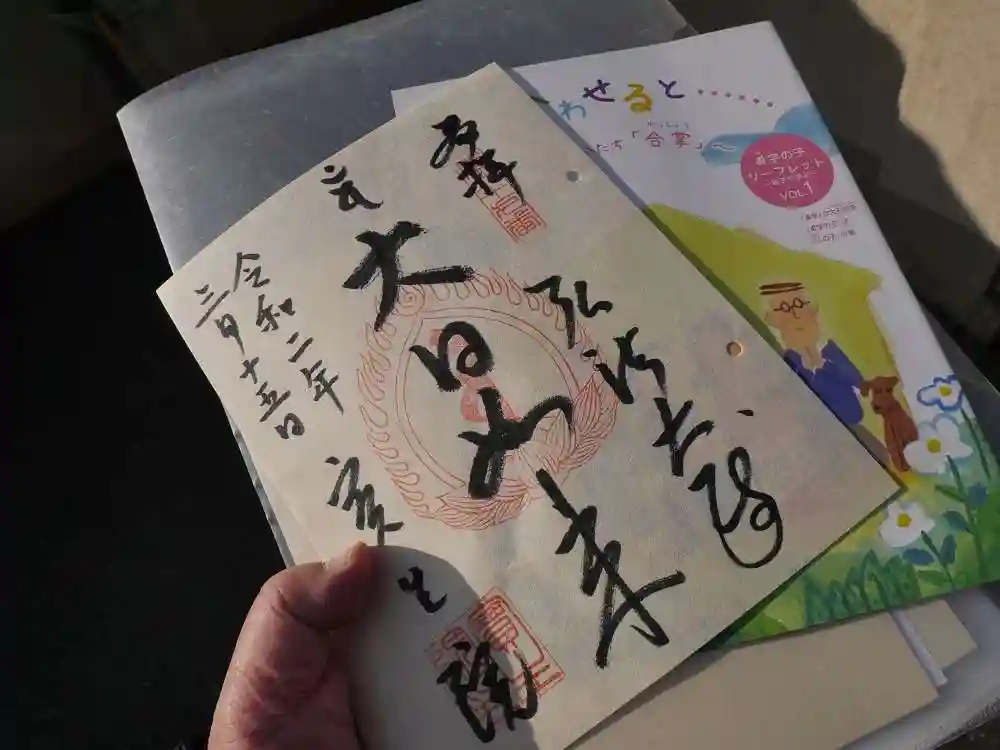 奉拝
弘法大師
大日如来
院
令和二年
三月十五日
わせると……
たち「合掌」～
リーフレット
VOL.1